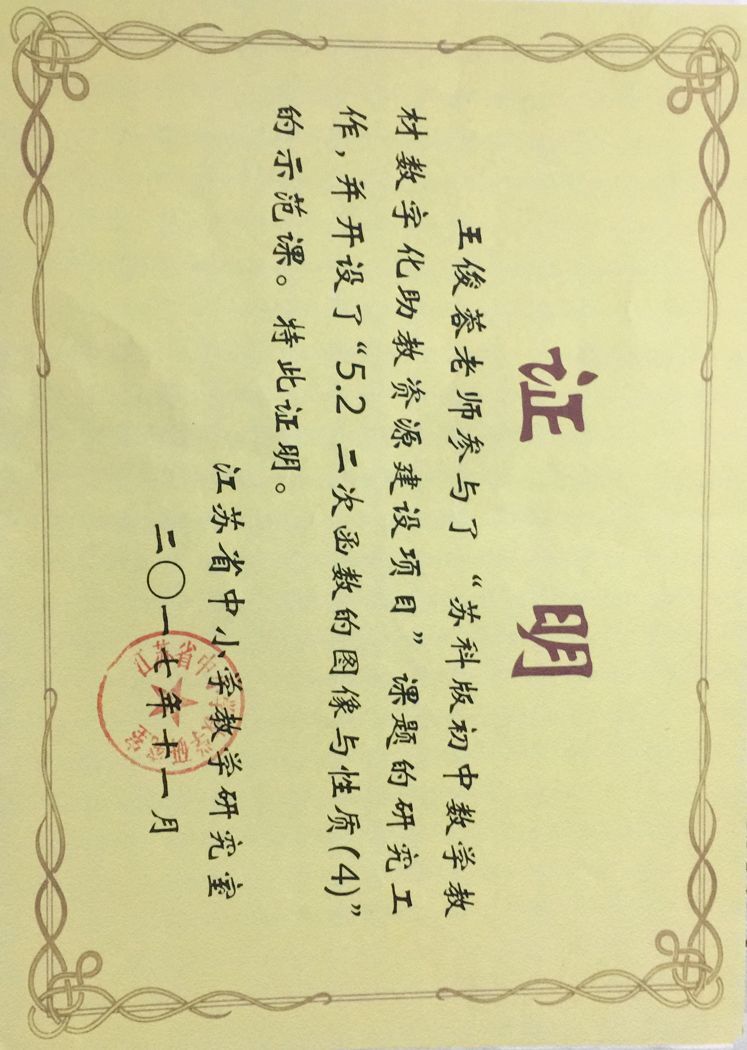 证 明
王俊蓉老师参与了“苏科版初中数学教
材数字化助教资源建设项目”课题的研究工
作，并开设了“5.2 二次函数的图像与性质(4)”
的示范课。特此证明。
江苏省中小学教学研究室
二〇一七年十一月
江苏省中小学教学研究室